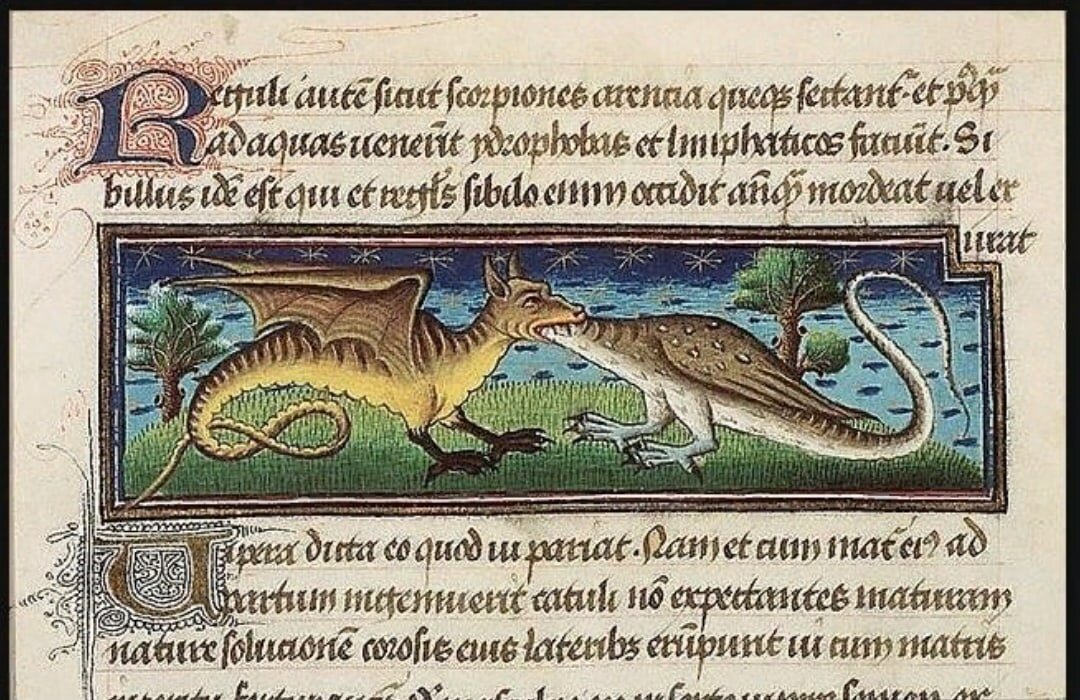 Reguli autē sicut scorpiones arentia queqꝫ sectant᷑ et pꝰq̄ꝫ
ad aquas uenerīt ydrophobas et limphaticos faciūt. Si
billus idē est qui et regl̄s sibilo enim occidit ān̄qꝫ mordeat uel ex
urat
Vipera dicta eo quod ui pariat. Nam et cum mat̄ ei᷒ ad
partum ingemuerit catuli nō expectantes maturam
nature solucionē corosis eius laterib᷒ erūpunt ui cum matris